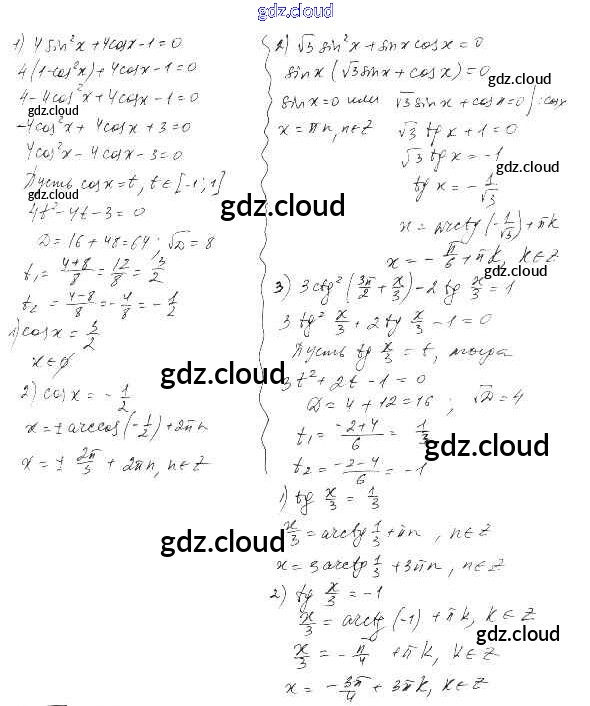 gdz.cloud
1) 4 sin²x + 4cosx - 1 = 0
4(1-cos²x) + 4cosx - 1 = 0
gdz.cloud
4 - 4cos²x + 4cosx - 1 = 0
gdz.cloud
-4cos²x + 4cosx + 3 = 0
4cos²x - 4cosx - 3 = 0
Пусть cosx = t, t ∈ [-1; 1]
gdz.cloud
4t² - 4t - 3 = 0
D = 16 + 48 = 64; √D = 8
t₁ = (4+8)/8 = 12/8 = 3/2
t₂ = (4-8)/8 = -4/8 = -1/2
1) cosx = 3/2
x ∈ ∅
2) cosx = -1/2
x = ± arccos(-1/2) + 2πn
x = ± 2π/3 + 2πn, n ∈ Z
2) √3 sin²x + sinx cosx = 0
sinx (√3 sinx + cosx) = 0
gdz.cloud
sinx = 0 или √3 sinx + cosx = 0 | : cosx
gdz.cloud
x = πn, n ∈ Z √3 tg x + 1 = 0
√3 tg x = -1
gdz.cloud
tg x = -1/√3
gdz.cloud
x = arctg(-1/√3) + πk
x = -π/6 + πk, k ∈ Z
gdz.cloud
3) 3ctg²(3π/2 + x/3) - 2 tg x/3 = 1
3 tg² x/3 + 2 tg x/3 - 1 = 0
Пусть tg x/3 = t, тогда
gdz.cloud
3t² + 2t - 1 = 0
D = 4 + 12 = 16 ; √D = 4
t₁ = (-2+4)/6 = 1/3
gdz.cloud
t₂ = (-2-4)/6 = -1
1) tg x/3 = 1/3
x/3 = arctg 1/3 + πn, n ∈ Z
gdz.cloud
x = 3arctg 1/3 + 3πn, n ∈ Z
2) tg x/3 = -1
x/3 = arctg(-1) + πk, k ∈ Z
gdz.cloud
x/3 = -π/4 + πk, k ∈ Z
x = -3π/4 + 3πk, k ∈ Z
gdz.cloud